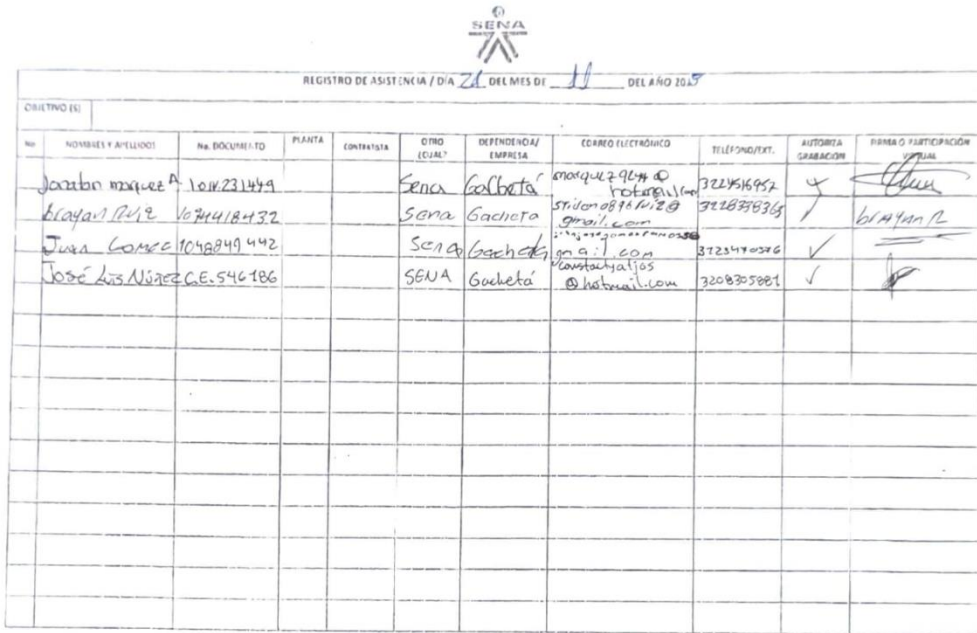 SENA
REGISTRO DE ASISTENCIA / DÍA 21 DEL MES DE 11 DEL AÑO 2025
OBJETIVO (S)
No NOMBRES Y APELLIDOS No. DOCUMENTO PLANTA CONTRATISTA OTRO (CUAL? DEPENDENCIA/ EMPRESA CORREO ELECTRÓNICO TELÉFONO/EXT. AUTORIZA GRABACIÓN FIRMA O PARTICIPACIÓN VIRTUAL
Jonatan marquez A Sena hotmail.com 3224516952
brayan Ruiz 1074418432 Sena Gacheta gmail.com brayan R
Juan Gomez 1048849442 Sena gmail.com 3123470576
José Luis Núñez C.E. 546186 SENA Gachetá @hotmail.com 3208305881